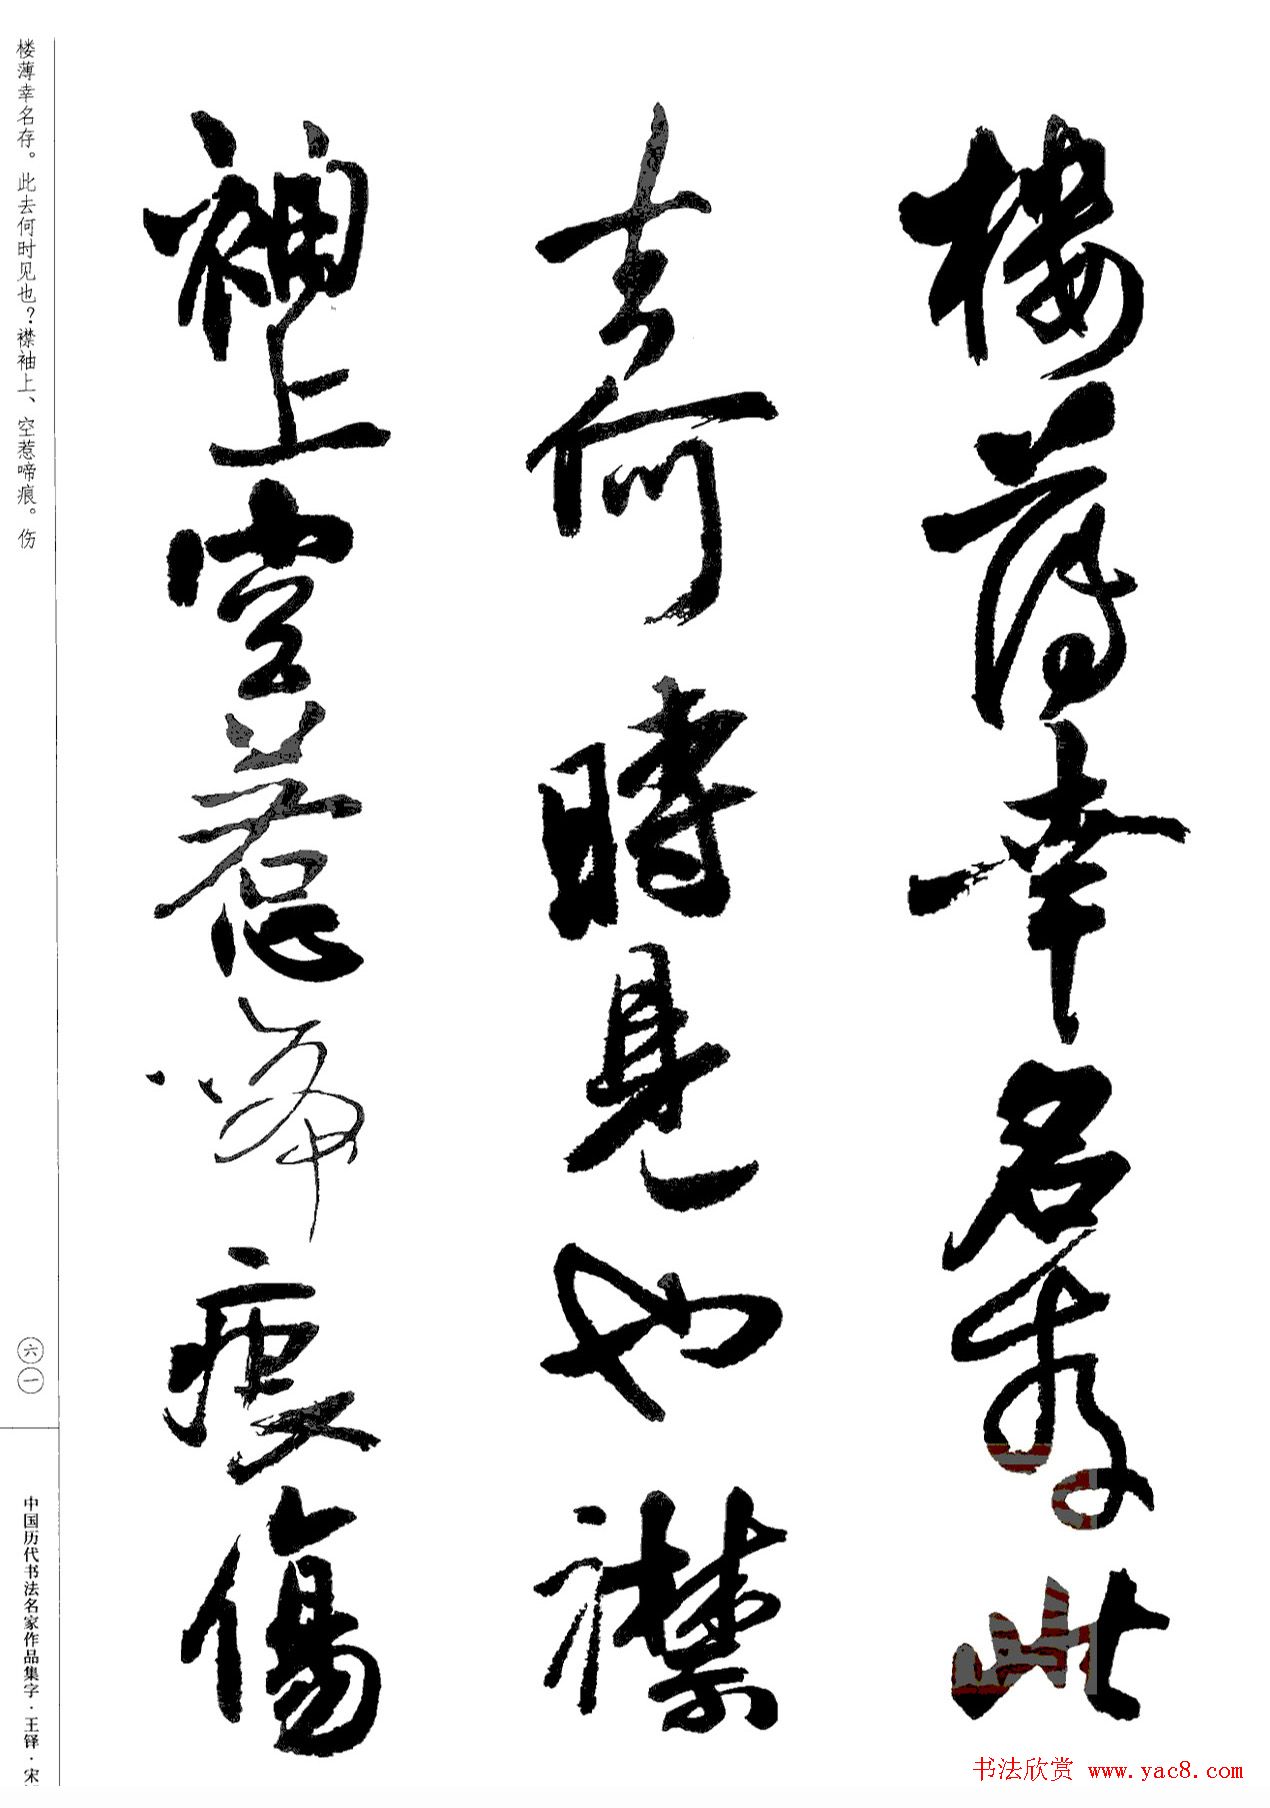 樓薄幸名存此
去何時見也襟
袖上空惹啼痕傷
楼薄幸名存。此去何时见也？襟袖上、空惹啼痕。伤
六一
中国历代书法名家作品集字·王铎·宋
书法欣赏 www.yac8.com